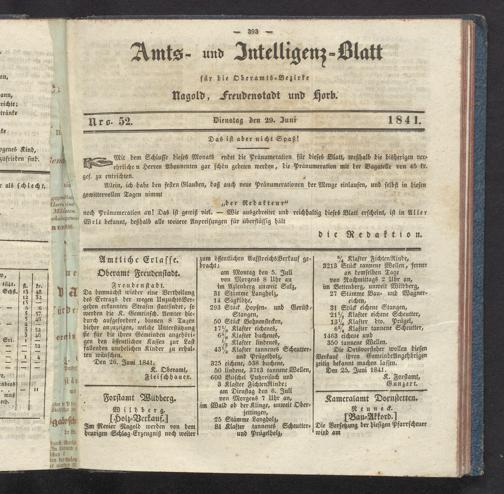 — 393 —
Amts- und Intelligenz-Blatt
für die Oberamts-Bezirke
Nagold, Freudenstadt und Horb.
Nro. 52. Dienstag den 29. Juni 1841.
Das ist aber nicht Spaß!
Mit dem Schlusse dieses Monats endet die Pränumeration für dieses Blatt, weßhalb die bisherigen ver-
ehrlichen Herren Abonnenten gar schön gebeten werden, die Pränumeration mit der Bagatelle von 45 kr.
gef. zu entrichten.
Allein, ich habe den festen Glauben, daß auch neue Pränumerationen der Menge einlaufen, und selbst in diesen
gewittervollen Tagen nimmt
„der Redakteur“
noch Pränumeration an! Das ist gewiß viel. — Wie ausgebreitet und reichhaltig dieses Blatt erscheint, ist in Aller
Welt bekannt, deßhalb alle weitere Anpreisungen für überflüssig hält
die Redaktion.
Amtliche Erlasse.
Oberamt Freudenstadt.
Freudenstadt.
Da demnächst wieder eine Vertheilung
des Ertrags der wegen Unzuchts-Ver-
gehen erkannten Strafen stattfindet, so
werden die K. Gemeinsch. Aemter hie-
durch angewiesen, binnen 8 Tagen
hieher anzuzeigen, welche Unterstützung
sie für die ihren Gemeinden angehöri-
gen den öffentlichen Kassen zur Last
fallenden unehelichen Kinder zu erhal-
ten wünschen.
Den 26. Juni 1841.
K. Oberamt,
Fleischhauer.
Forstamt Wildberg.
Wildberg.
[Holz-Verkauf.]
Im Revier Nagold werden von dem
heurigen Schlag-Erzeugniß noch weiter
zum öffentlichen Aufstreichs-Verkauf ge-
bracht;
am Montag den 5. Juli
von Morgens 8 Uhr an
im unweit Sulz,
81 Stämme Langholz,
14 Sägklötze,
293 Stück Hopfen- und Gerüst-
Stangen,
50 Stück
Klafter eichenes,
Klafter buchenes,
Klafter birkenes,
Klafter tannenes Scheuter-
und Prügelholz,
325 eichene, 538 buchene,
50 lindene, 3213 tannene Wellen,
600 Büschel
3 Klafter Fichten-Rinde;
am Dienstag den 6. Juli
von Morgens 7 Uhr an,
im Wald ob der Klinge, unweit Ober-
jettingen,
25 Stämme Langholz,
84 Klafter tannenes Scheuter-
und Prügelholz,
Klafter Fichten-Rinde,
3213 Stück tannene Wellen, ferner
an demselben Tage
von Nachmittags 2 Uhr an,
im unweit Wildberg,
27 Stämme Bau- und Wagner-
eichen,
31 Stück eichene Stangen,
Klafter eichene Scheuter,
Klafter dto. Prügel,
Klafter tannene Scheuter,
1463 eichene und
350 tannene Wellen.
Die Ortsvorsteher wollen diesen
Verkauf ihren Gemeinde-Angehörigen
zeitig bekannt machen lassen.
Den 25. Juni 1841.
K. Forstamt,
Gunzert.
Kameralamt Dornstetten.
Neuneck.
[Bau-Akkord.]
Die Versetzung der hiesigen Pfarrscheuer
wird am